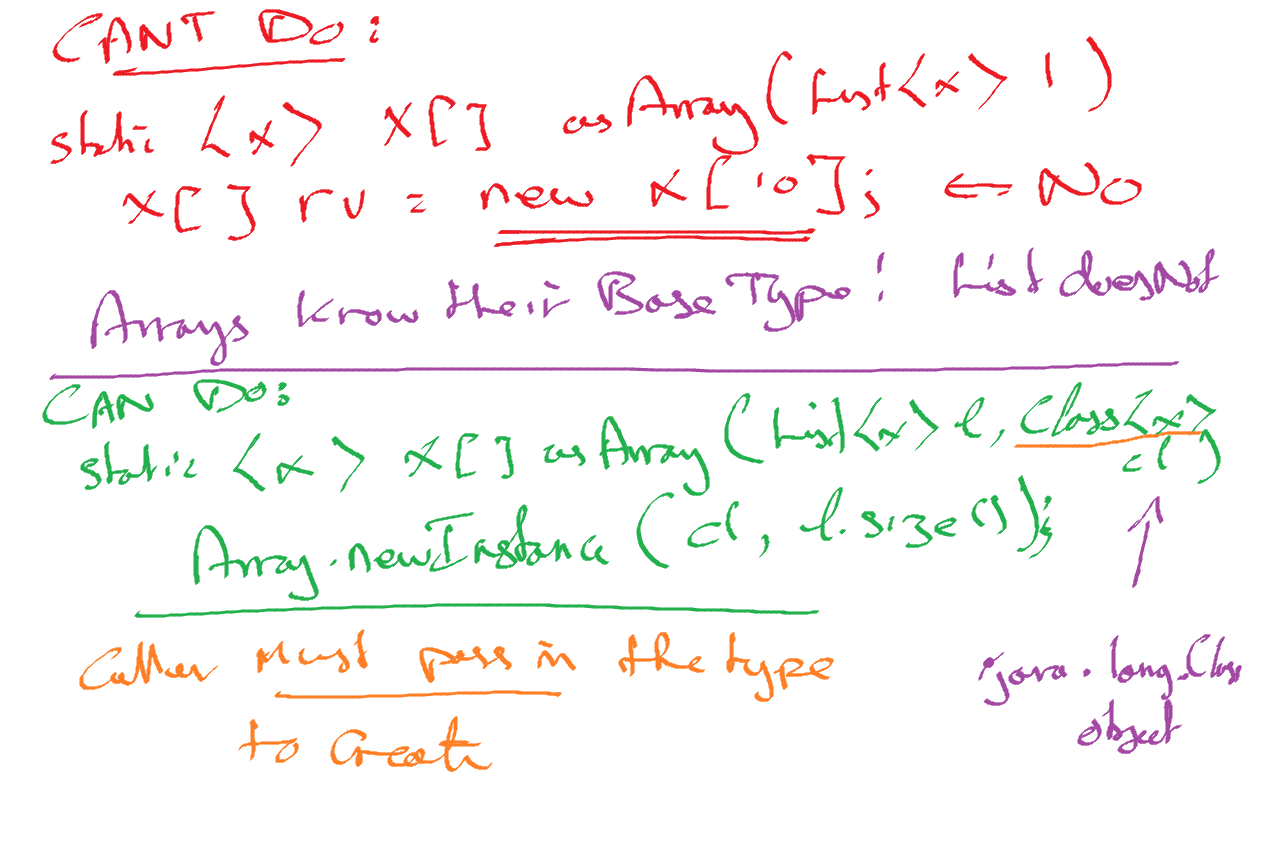 CANT DO:
static <x> X[] asArray(List<x> l)
X[] rv = new X[10]; ← NO
Arrays know their Base Type! List does Not
CAN DO:
static <x> X[] asArray(List<x> l, Class<x> cl)
Array.newInstance(cl, l.size());
Caller Must pass in the type
to Create
java.lang.Class
object